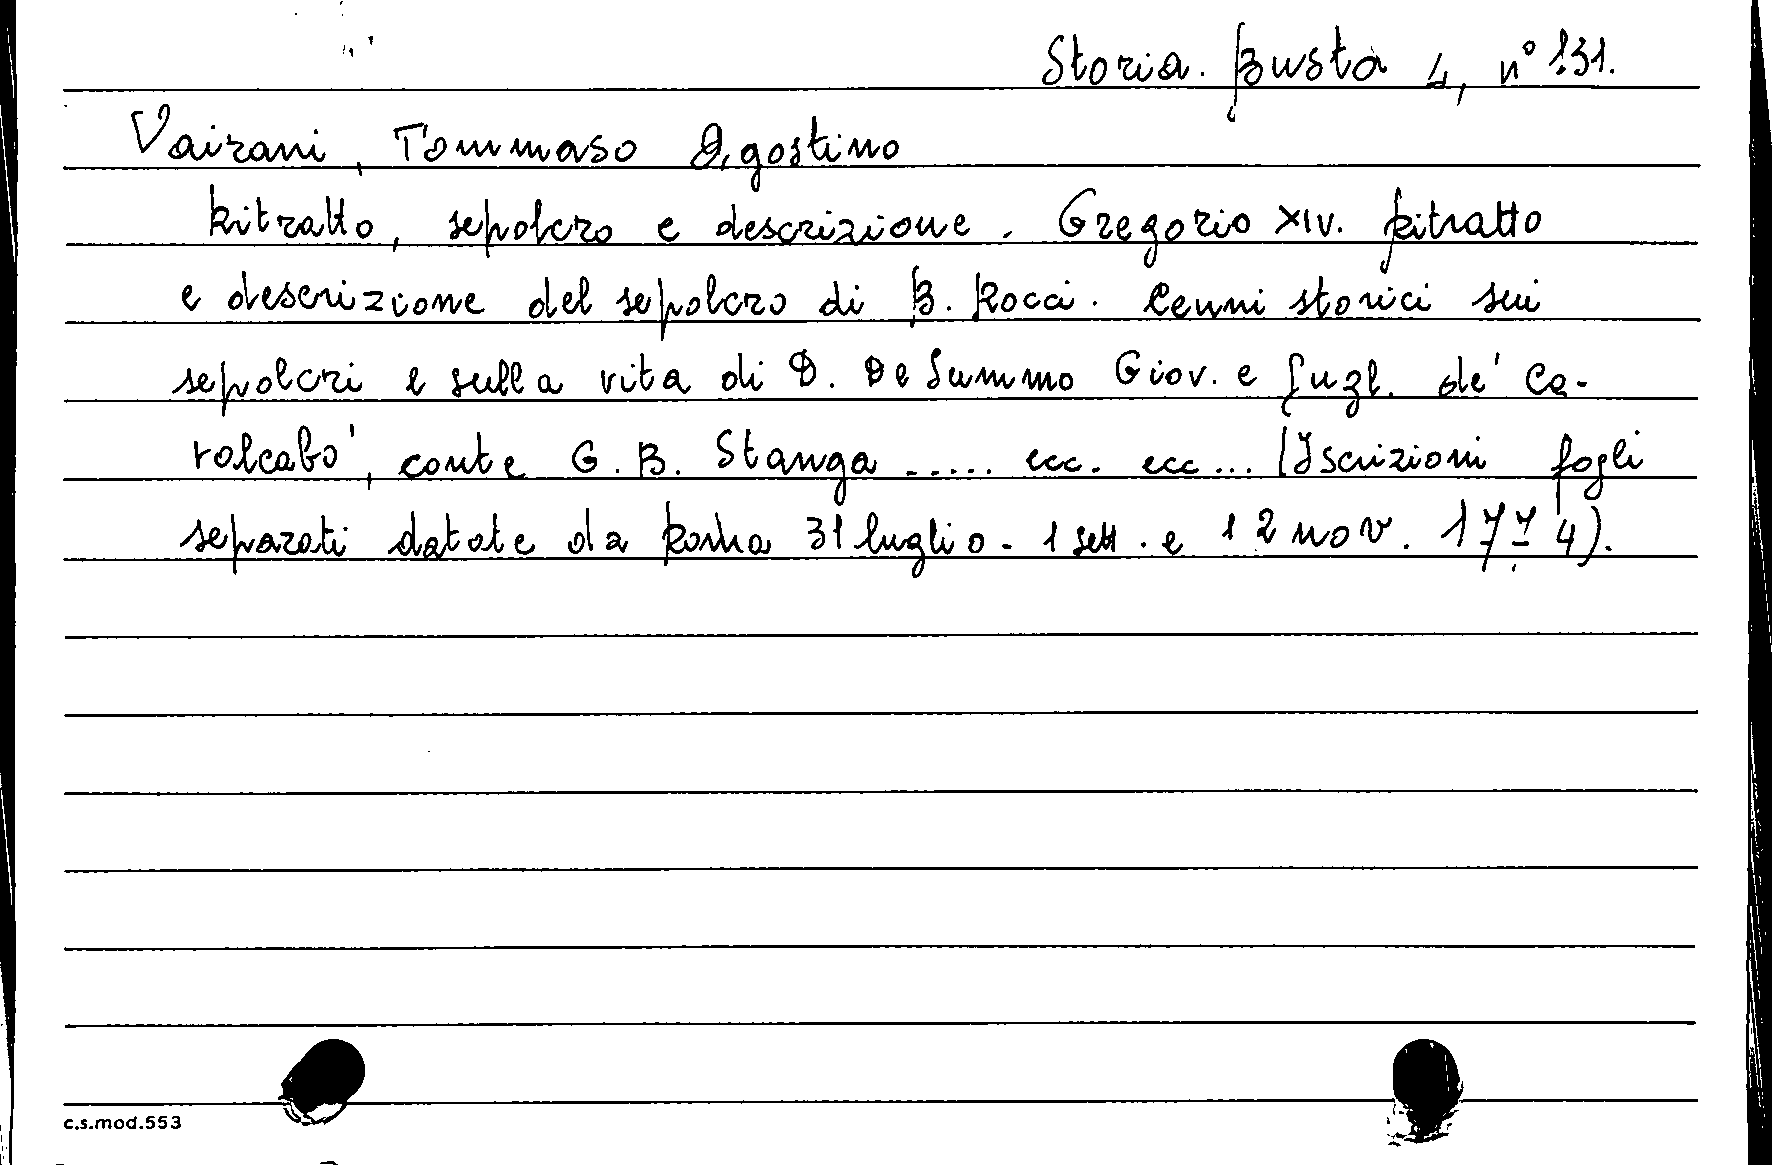 Storia. Busta 4, n° 131.
Vairani, Tommaso Agostino
Ritratto, sepolcro e descrizione. Gregorio XIV. Ritratto
e descrizione del sepolcro di B. Rocci. Cenni storici sui
sepolcri e sulla vita di D. De Summo Giov. e Gugl. de' Ca-
valcabò, conte G. B. Stanga ..... ecc. ecc... (Iscrizioni fogli
separati datate da Roma 31 luglio - 1 sett. e 12 nov. 1774).
c.s.mod.553